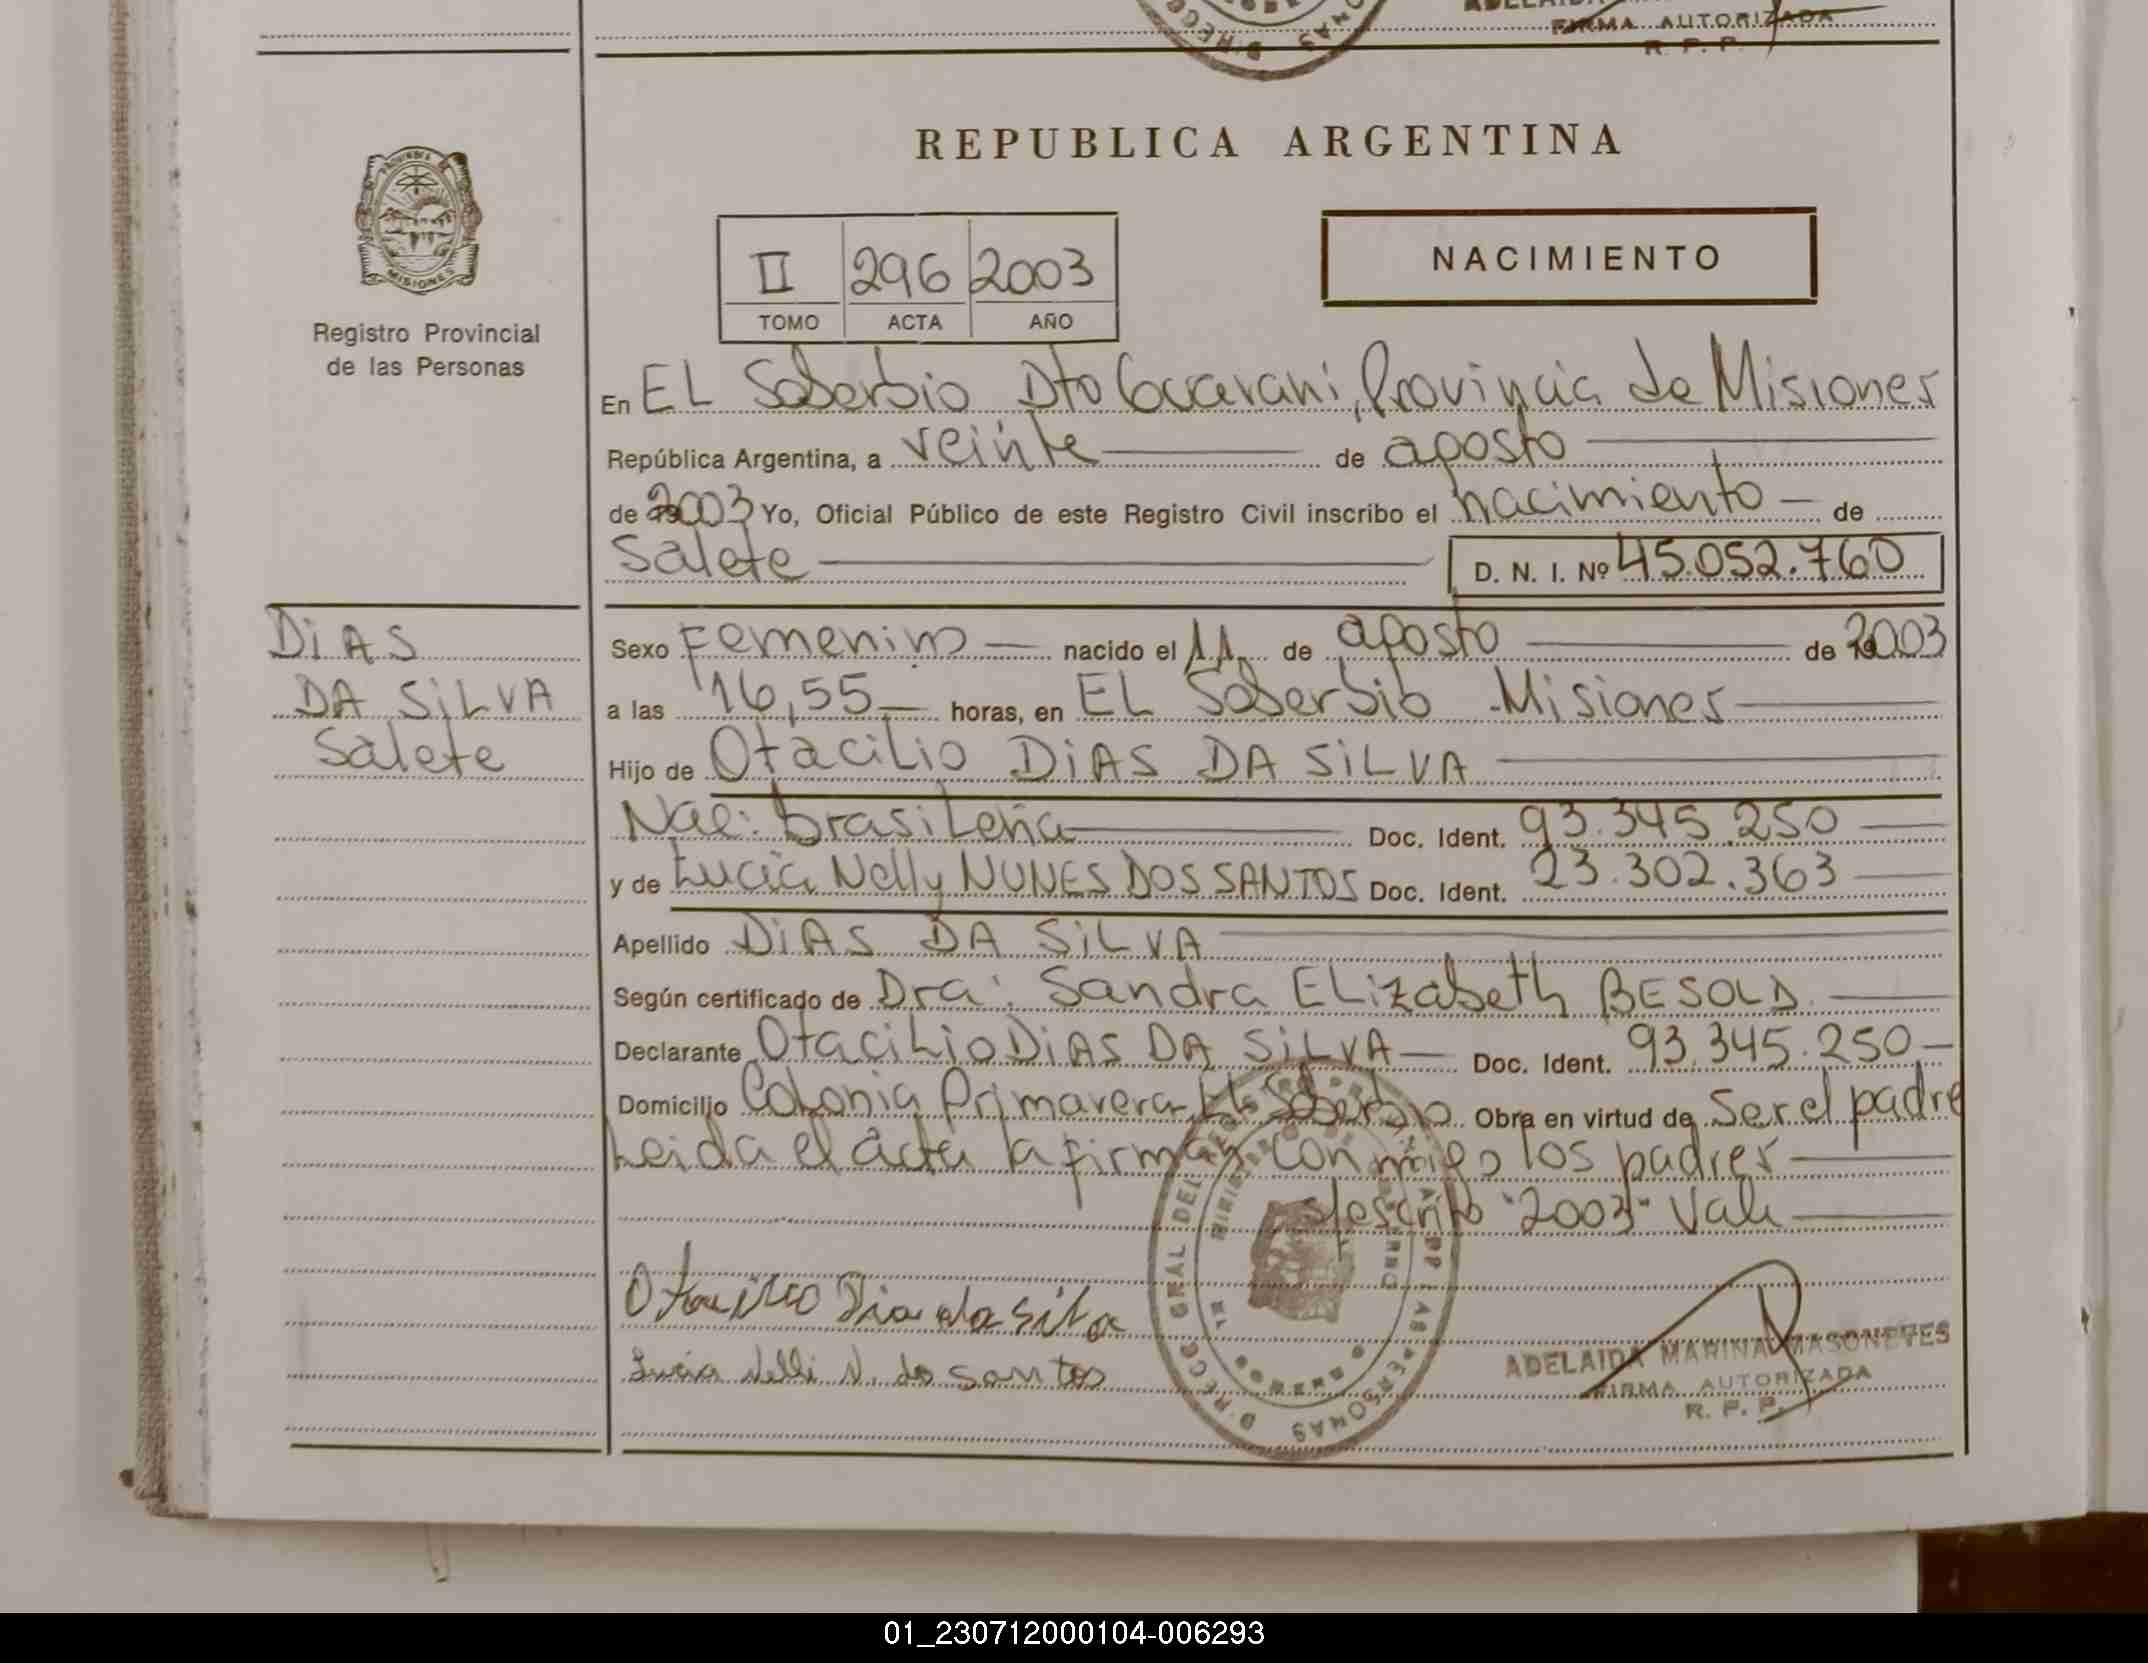 FIRMA AUTORIZADA
R. P. P.
REPUBLICA ARGENTINA
PROVINCIA
MISIONES
Registro Provincial
de las Personas
II 296 2003
TOMO ACTA AÑO
NACIMIENTO
En EL Soberbio Dto Guarani, Provincia de Misiones
República Argentina, a veinte de agosto
de 2003 Yo, Oficial Público de este Registro Civil inscribo el nacimiento de
Salete D. N. I. Nº 45.052.760
DiAS
DA SiLVA
Salete
Sexo Femenino nacido el 11 de agosto de 2003
a las 16,55 horas, en EL Soberbio Misiones
Hijo de Otacilio DiAS DA SiLVA
Nac: brasileña Doc. Ident. 93.345.250
y de Lucia Nelly NUNES DOS SANTOS Doc. Ident. 23.302.363
Apellido DiAS DA SiLVA
Según certificado de Dra. Sandra ELizabeth BESOLD
Declarante Otacilio DiAS DA SiLVA Doc. Ident. 93.345.250
Domicilio Colonia Primavera EL Soberbio Obra en virtud de Ser el padre
Leida el acta la firman conmigo los padres
s/escrito "2003" Vale
Otacilio Dias da silva
Lucia Nelli N. do santos
ADELAIDA MARINA MASONEVES
FIRMA AUTORIZADA
R. P. P.
01_230712000104-006293